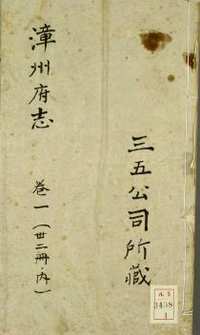 三五公司所藏
漳州府志 卷一(廿二冊內)